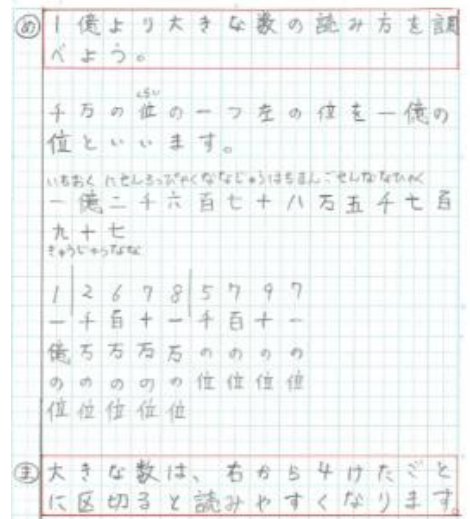 め 1億より大きな数の読み方を調
べよう。
くらい
千万の位の一つ左の位を一億の
位といいます。
いちおくにせんろっぴゃくななじゅうはちまんごせんななひゃく
一億二千六百七十八万五千七百
九十七
きゅうじゅうなな
1 2 6 7 8 5 7 9 7
一 千 百 十 一 千 百 十 一
億 万 万 万 万 の の の の
の の の の の 位 位 位 位
位 位 位 位 位
ま 大きな数は、右から4けたごと
に区切ると読みやすくなります。